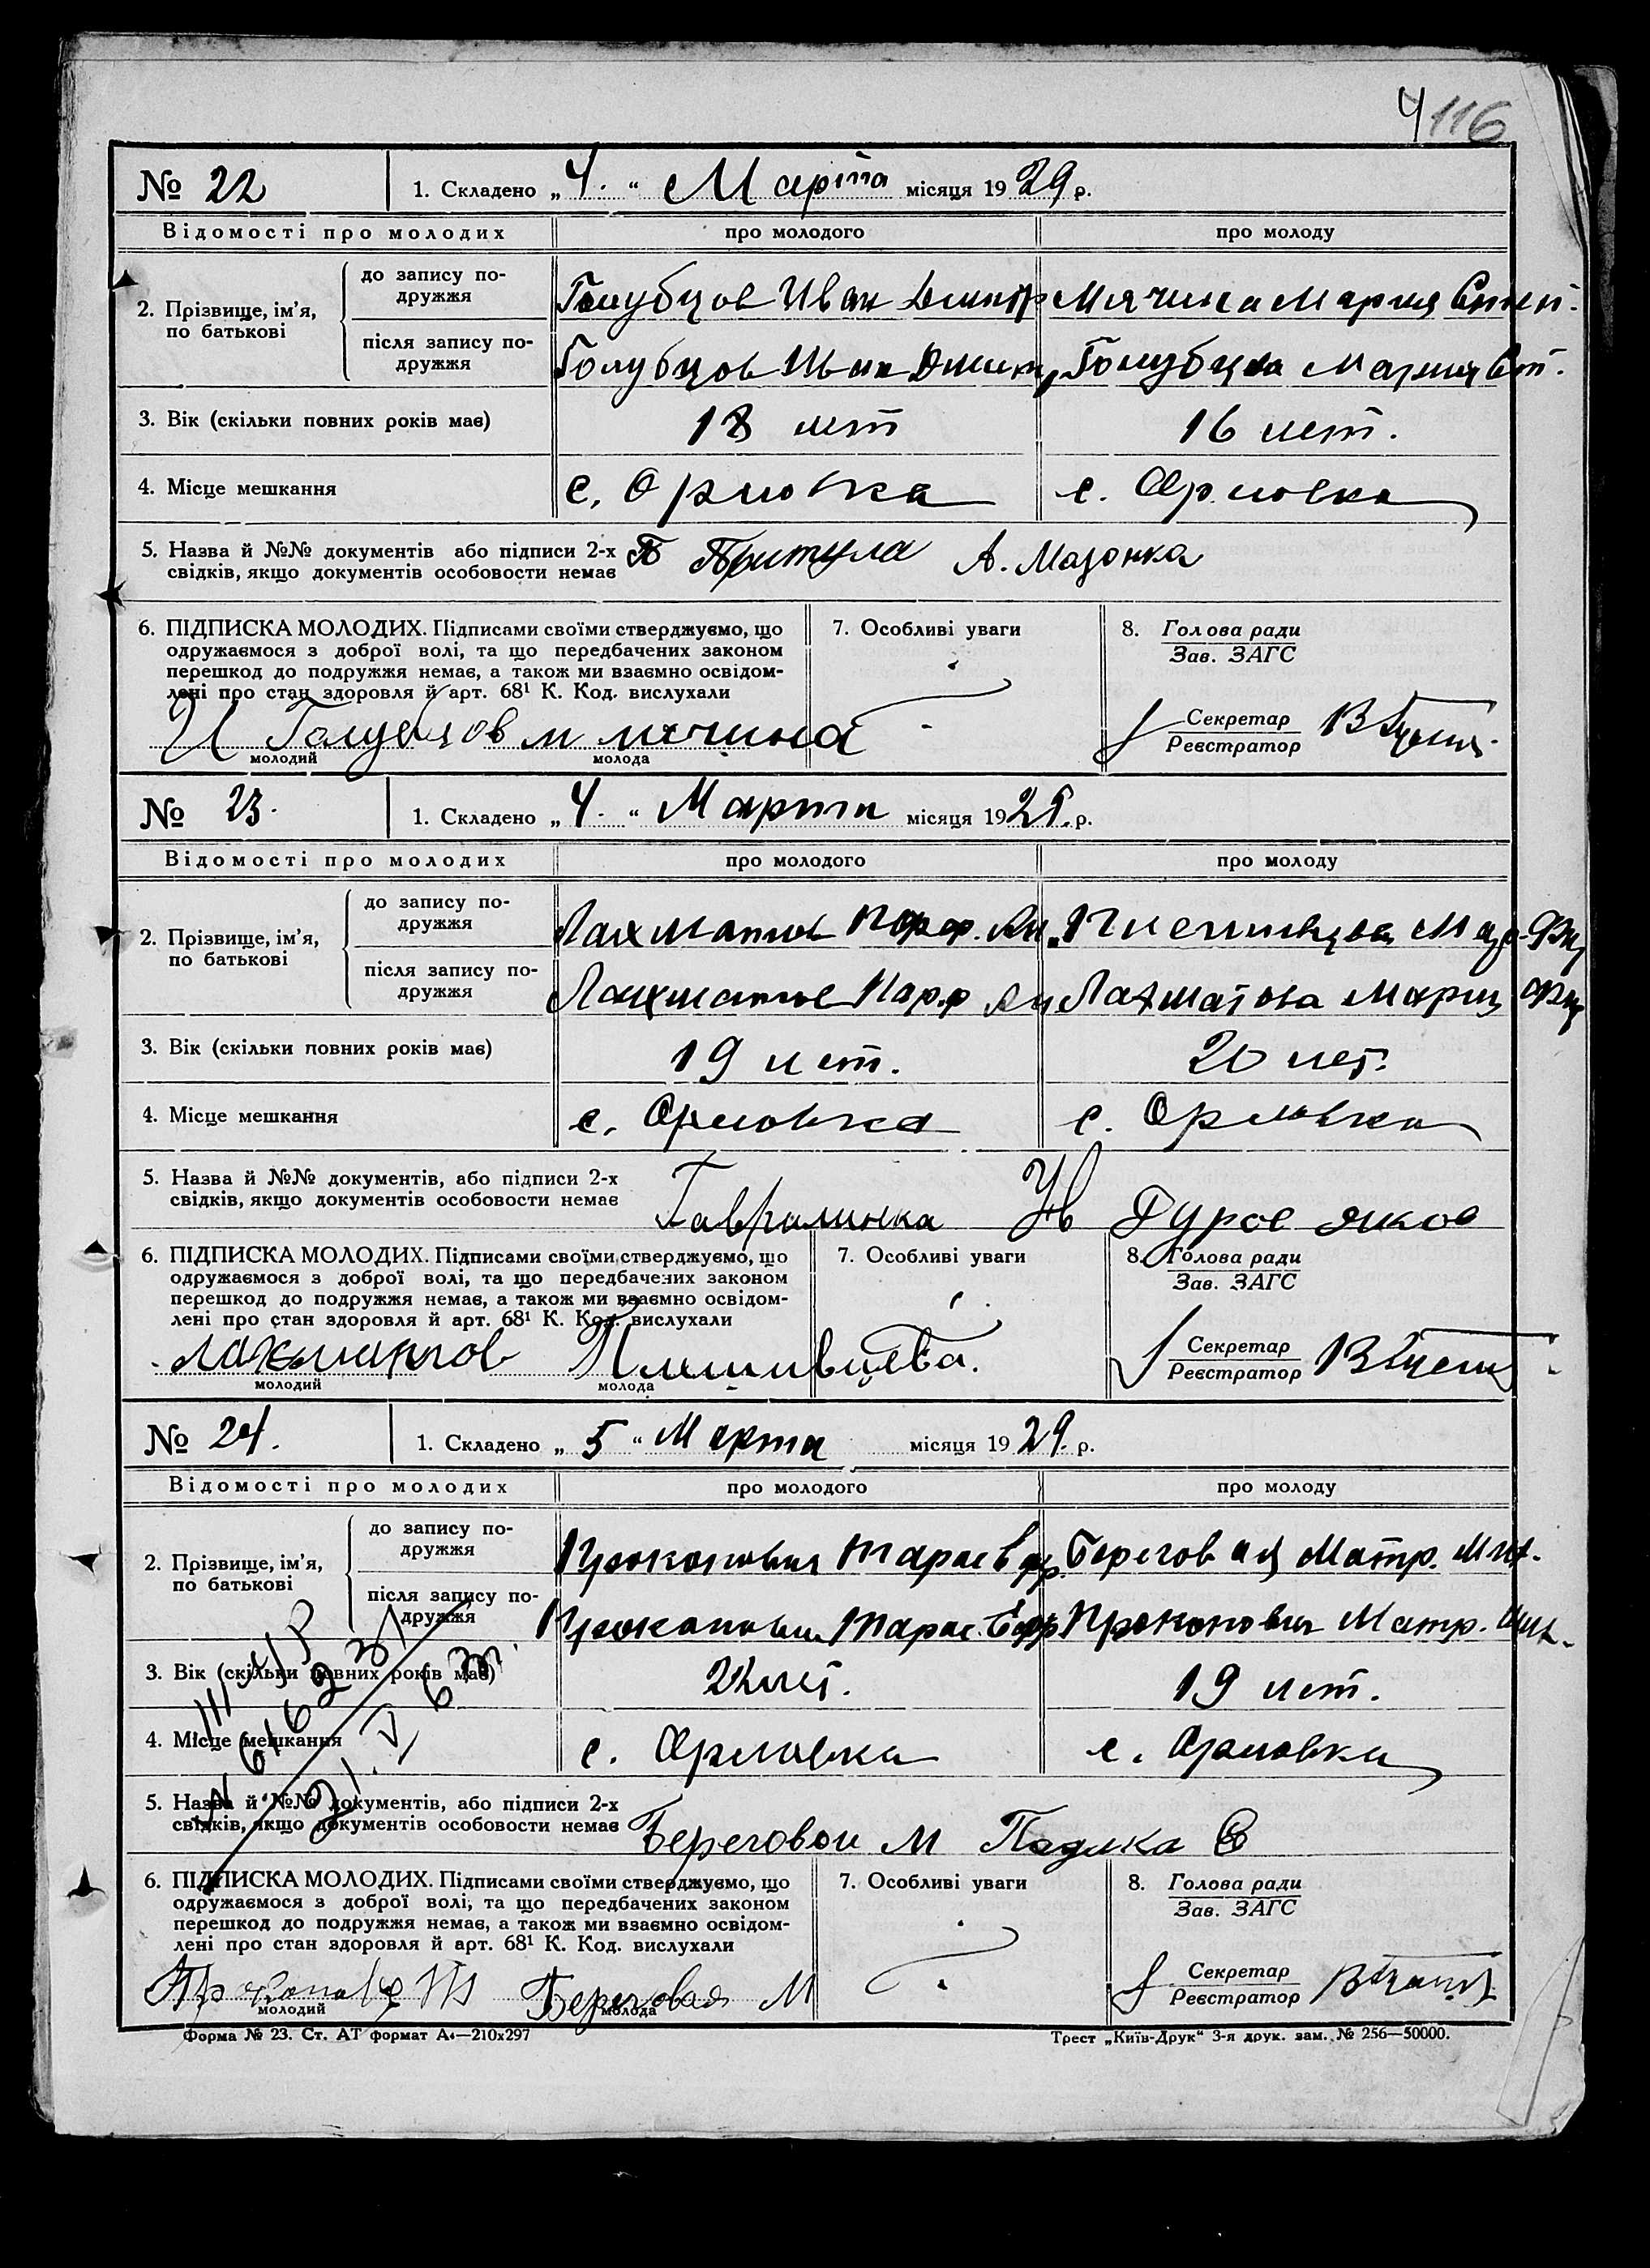 4 116
№ 22 1. Складено „4.“ Марта місяця 1929 р.
Відомості про молодих про молодого про молоду
2. Прізвище, ім’я, по батькові
до запису подружжя Голубцов Иван Дмитр Мячина Мария Степ.
після запису подружжя Голубцов Иван Дмитр Голубцова Мария Ст.
3. Вік (скільки повних років має) 18 лет 16 лет.
4. Місце мешкання с. Орловка с. Орловка
5. Назва й №№ документів або підписи 2-х
свідків, якщо документів особовости немає П Притула А. Мазонка
6. ПІДПИСКА МОЛОДИХ. Підписами своїми стверджуємо, що
одружаємося з доброї волі, та що передбачених законом
перешкод до подружжя немає, а також ми взаємно освідом-
лені про стан здоровля й арт. 68¹ К. Код. вислухали
7. Особливі уваги
8. Голова ради
Зав. ЗАГС
Секретар
Реєстратор
И Голубцов м мячина
молодий молода
№ 23. 1. Складено „4.“ Марта місяця 1929. р.
Відомості про молодих про молодого про молоду
2. Прізвище, ім’я, по батькові
до запису подружжя Лахматов Парф.
після запису подружжя Лахматов Парф Лахматова Мария
3. Вік (скільки повних років має) 19 лет. 20 лет.
4. Місце мешкання с. Орловка с. Орловка
5. Назва й №№ документів, або підписи 2-х
свідків, якщо документів особовости немає Гуров Яков
6. ПІДПИСКА МОЛОДИХ. Підписами своїми стверджуємо, що
одружаємося з доброї волі, та що передбачених законом
перешкод до подружжя немає, а також ми взаємно освідом-
лені про стан здоровля й арт. 68¹ К. Код. вислухали
7. Особливі уваги
8. Голова ради
Зав. ЗАГС
Секретар
Реєстратор
Лахматов
молодий молода
№ 24. 1. Складено „5“ Марта місяця 1929. р.
Відомості про молодих про молодого про молоду
2. Прізвище, ім’я, по батькові
до запису подружжя Прокопович Тарас Ефр. Береговая Матр. Мих.
після запису подружжя Прокопович Тарас Ефр Прокопович Матр. Мих.
3. Вік (скільки повних років має) 19 лет.
4. Місце мешкання с. Орловка с. Орловка
5. Назва й №№ документів, або підписи 2-х
свідків, якщо документів особовости немає Береговой М
6. ПІДПИСКА МОЛОДИХ. Підписами своїми стверджуємо, що
одружаємося з доброї волі, та що передбачених законом
перешкод до подружжя немає, а також ми взаємно освідом-
лені про стан здоровля й арт. 68¹ К. Код. вислухали
7. Особливі уваги
8. Голова ради
Зав. ЗАГС
Секретар
Реєстратор
Береговая М
молодий молода
Форма № 23. Ст. АТ формат А₄—210x297 Трест „Київ-Друк“ 3-я друк. зам. № 256—50000.